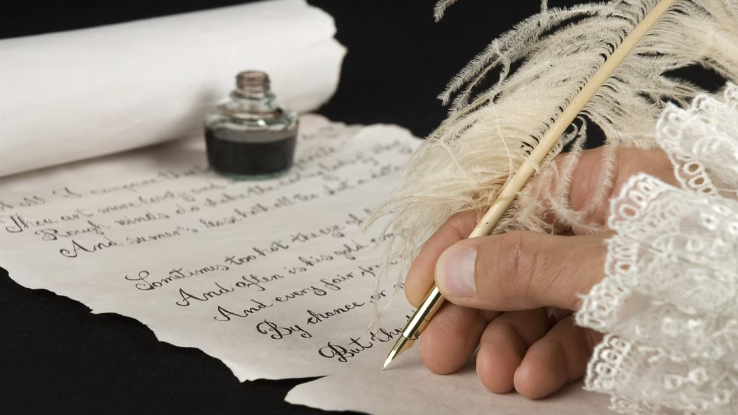 Shall I compare th
Thou art more lovely and
Rough winds do shake the
And summer's lease hath all
Sometimes too hot the eye of
And often is his gold com
And every fair fr
By chance or n
But thy